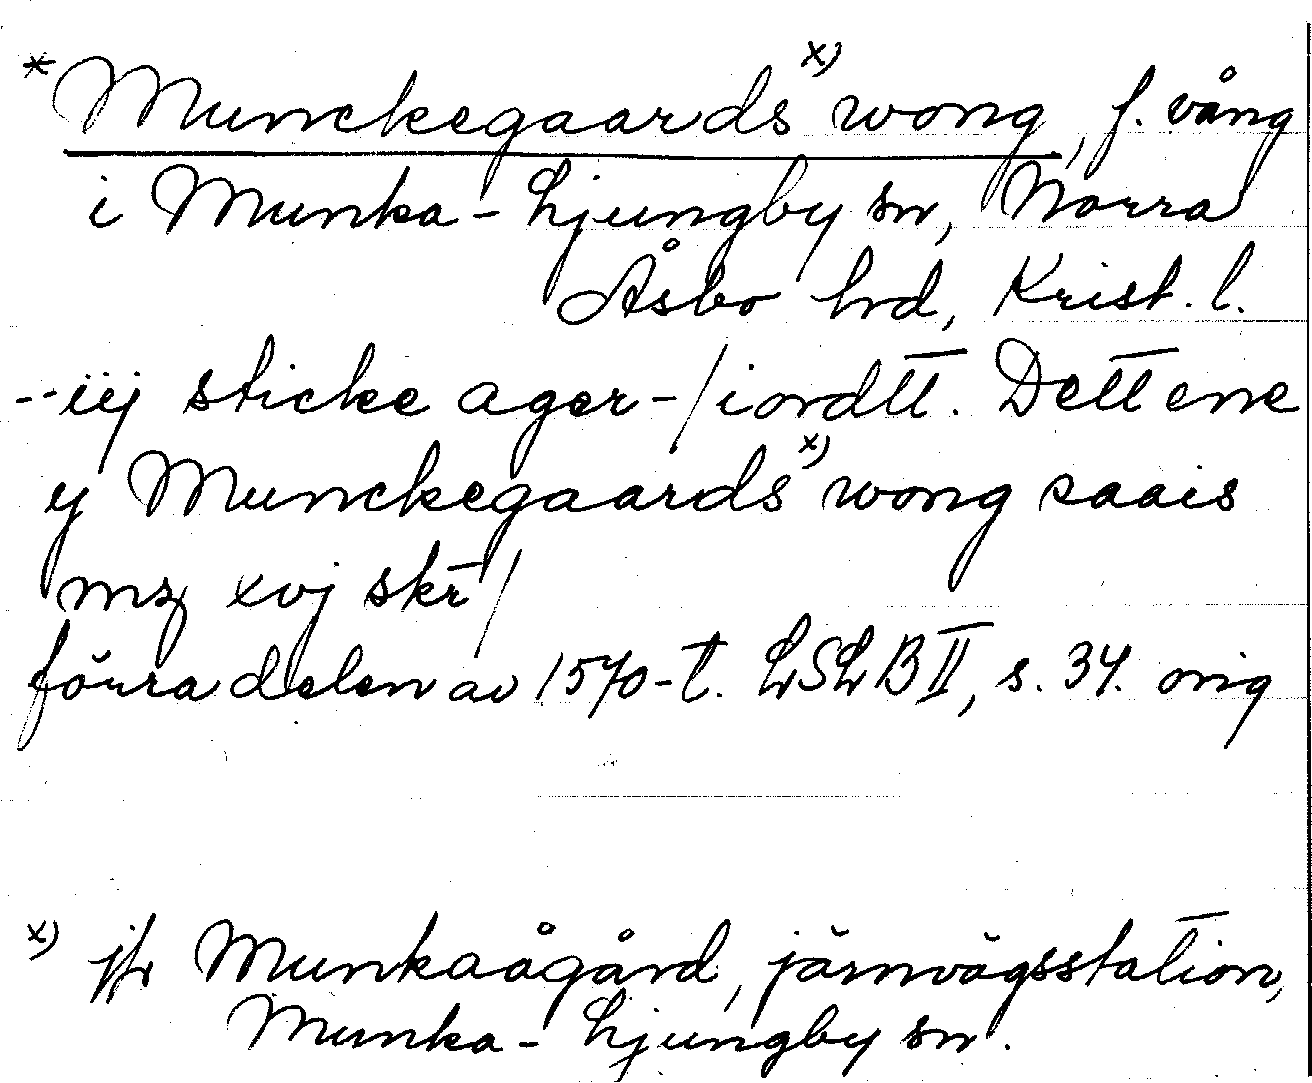 * Munckegaards x) wong, f. vång
i Munka-Ljungby sn, Norra
Åsbo hd, Krist. l.
--iij sticke ager-/iordtt. Dett ene
y Munckegaards x) wong saais
mz xvj skr̄ /
förra delen av 1570-t. LSLB II, s. 34. orig
x) jfr Munkaågård, järnvägsstation,
Munka-Ljungby sn.